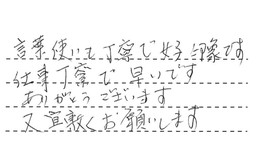 言葉使いも丁寧で好印象です
仕事丁寧で早いです
ありがとうございます
又宜敷くお願いします